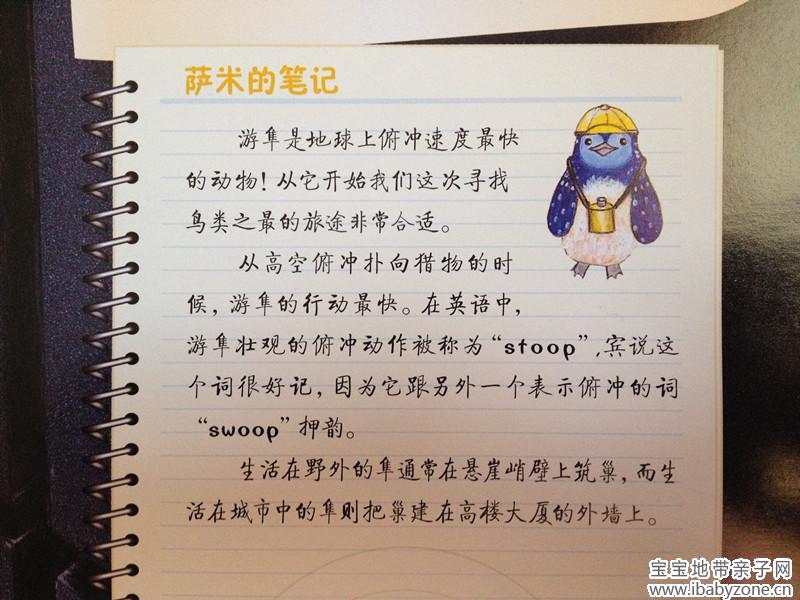 萨米的笔记
游隼是地球上俯冲速度最快
的动物！从它开始我们这次寻找
鸟类之最的旅途非常合适。
从高空俯冲扑向猎物的时
候，游隼的行动最快。在英语中，
游隼壮观的俯冲动作被称为“stoop”，宾说这
个词很好记，因为它跟另外一个表示俯冲的词
“swoop”押韵。
生活在野外的隼通常在悬崖峭壁上筑巢，而生
活在城市中的隼则把巢建在高楼大厦的外墙上。
宝宝地带亲子网
www.ibabyzone.cn